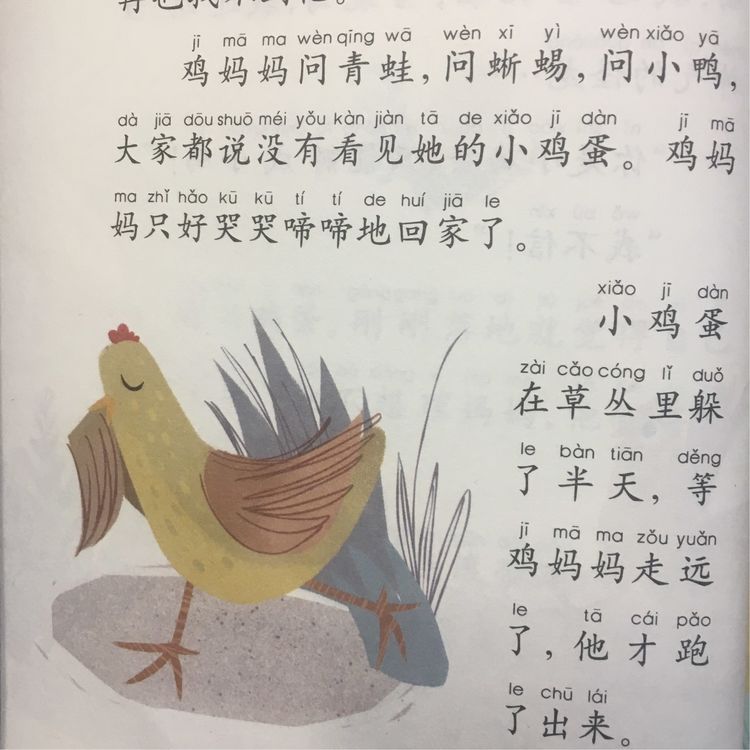 jī mā ma wèn qíng wā wèn xī yì wèn xiǎo yā
鸡妈妈问青蛙，问蜥蜴，问小鸭，
dà jiā dōu shuō méi yǒu kàn jiàn tā de xiǎo jī dàn jī mā
大家都说没有看见她的小鸡蛋。鸡妈
ma zhǐ hǎo kū kū tí tí de huí jiā le
妈只好哭哭啼啼地回家了。
xiǎo jī dàn
小鸡蛋
zài cǎo cóng lǐ duǒ
在草丛里躲
le bàn tiān děng
了半天，等
jī mā ma zǒu yuǎn
鸡妈妈走远
le tā cái pǎo
了，他才跑
le chū lái
了出来。